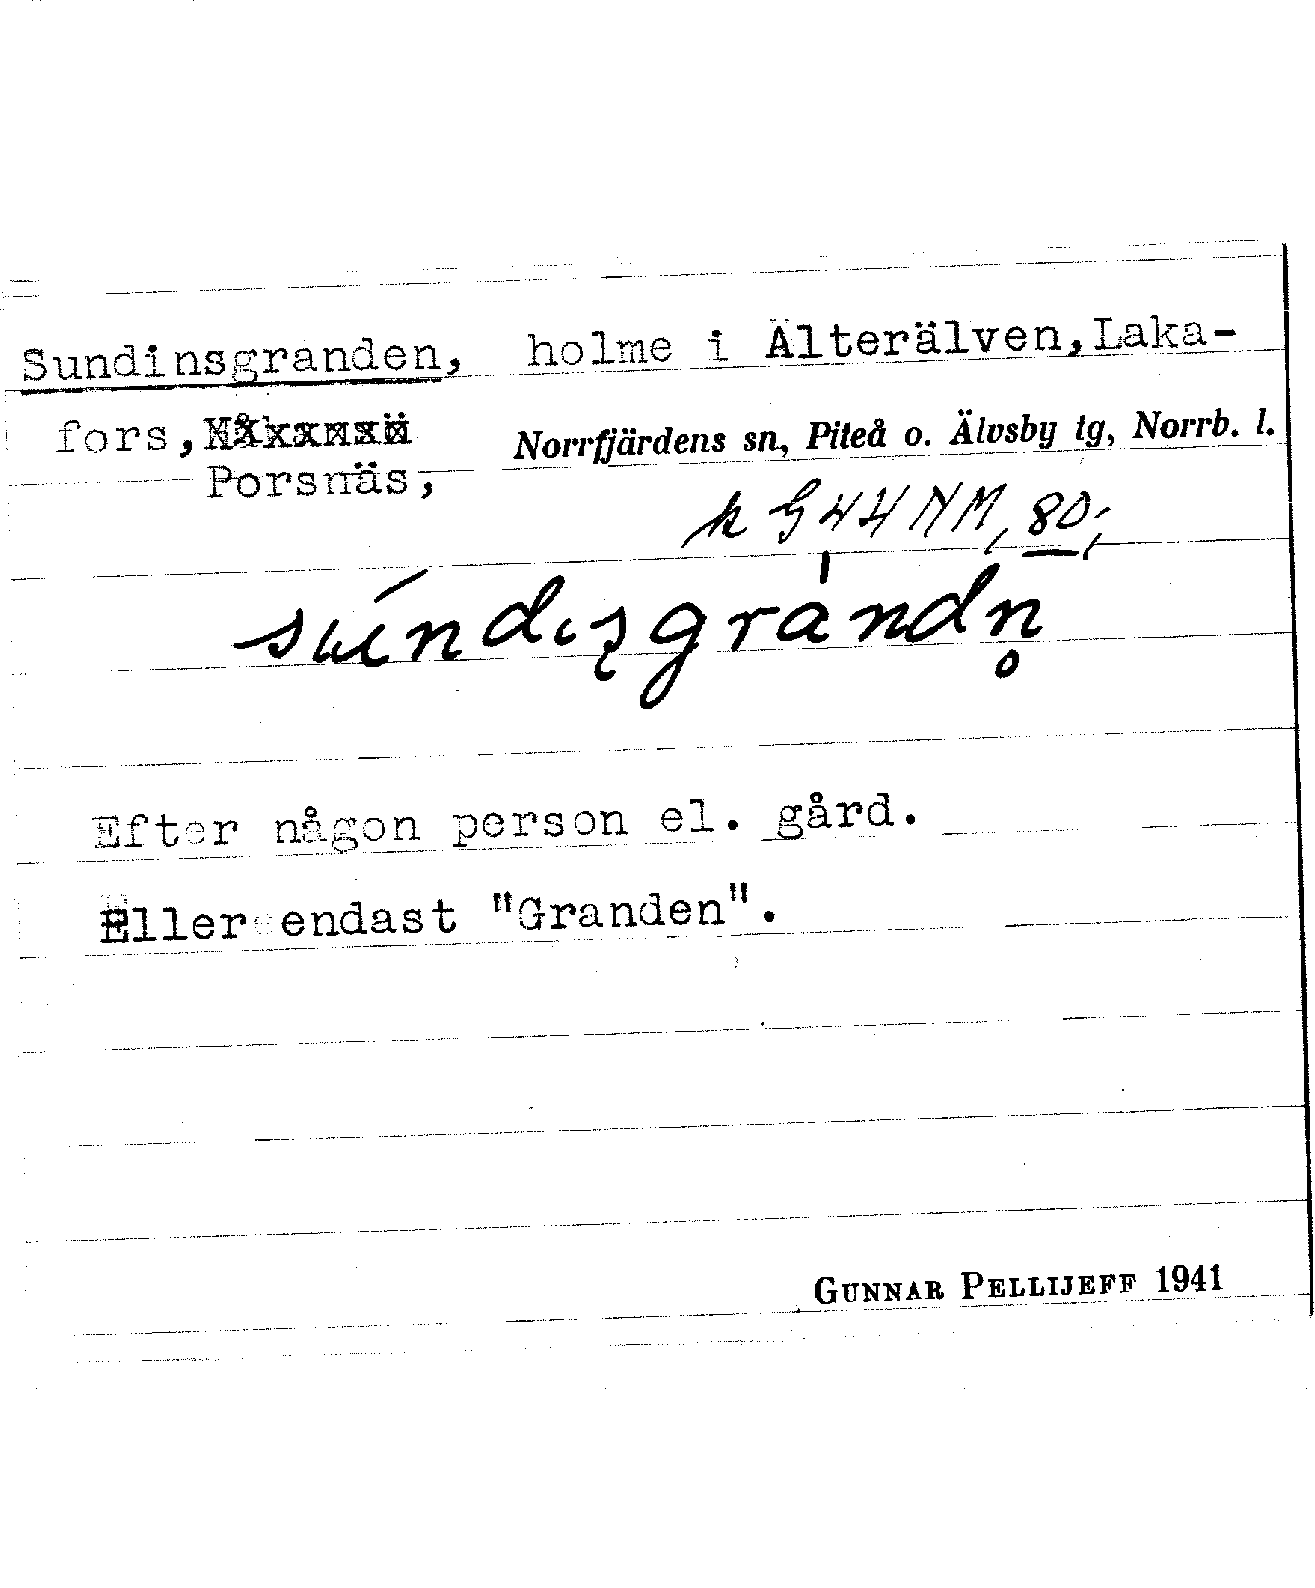 Sundinsgranden, holme i Älterälven, Laka-
fors, Norrfjärdens sn, Piteå o. Älvsby tg, Norrb. l.
Porsnäs,
80,
Efter någon person el. gård.
Eller endast "Granden".
GUNNAR PELLIJEFF 1941